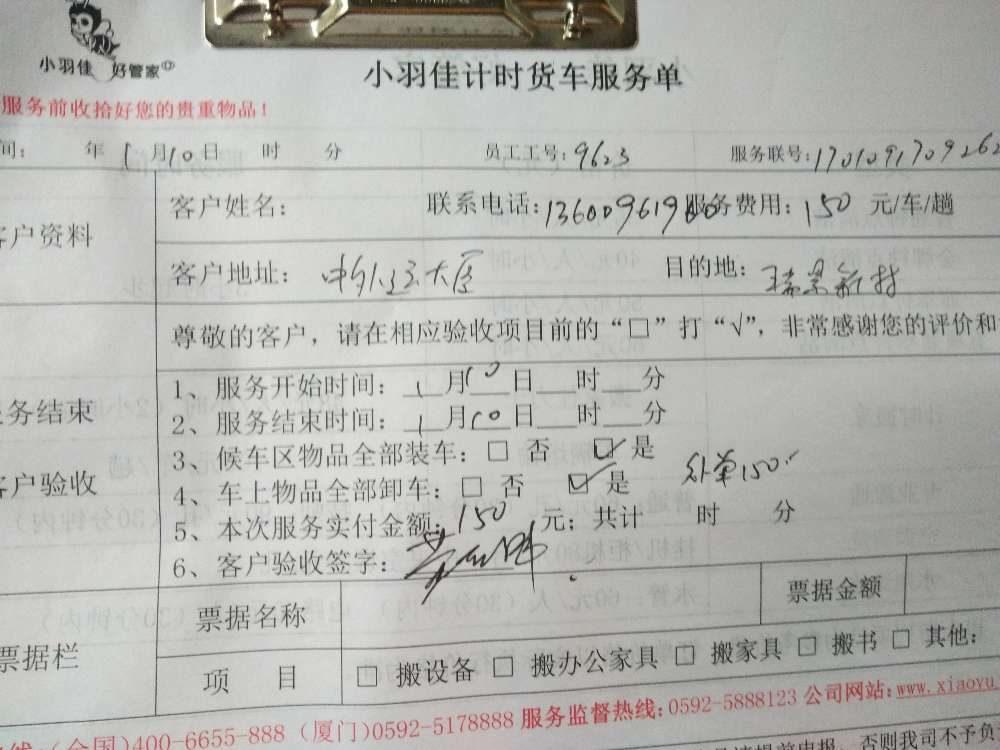 小羽佳 好管家
小羽佳计时货车服务单
服务前收拾好您的贵重物品！
间： 年 1月10日 时 分 员工工号：9623 服务联号：1701091709262
客户资料
客户姓名： 联系电话：13600961900 服务费用：150 元/车/趟
客户地址： 大厦 目的地：瑞景新村
尊敬的客户，请在相应验收项目前的“□”打“√”，非常感谢您的评价和
务结束
客户验收
1、服务开始时间：1月10日 时 分
2、服务结束时间：1月10日 时 分
3、候车区物品全部装车：□ 否 ☑ 是
4、车上物品全部卸车：□ 否 ☑ 是 外单150.
5、本次服务实付金额：150 元；共计 时 分
6、客户验收签字：
票据栏
票据名称 票据金额
项 目 □ 搬设备 □ 搬办公家具 □ 搬家具 □ 搬书 □ 其他：
线：（全国）400-6655-888（厦门）0592-5178888 服务监督热线：0592-5888123 公司网站：www.xiaoyu
请提前申报，否则我司不予负